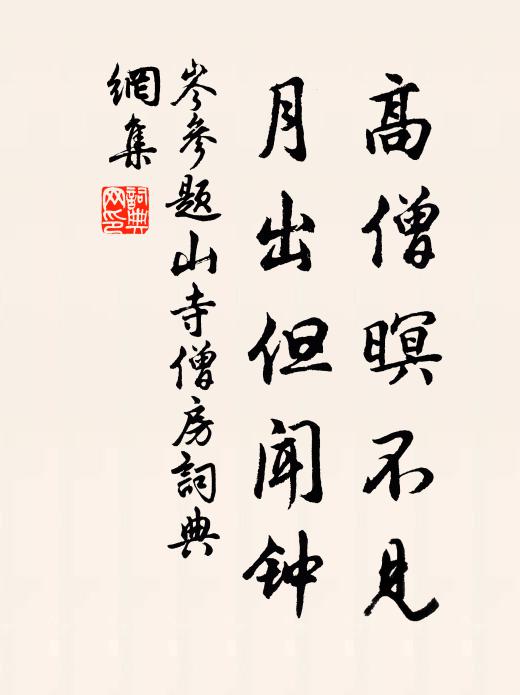 高僧暝不见
月出但闻钟
岑參題山寺僧房詞典
網集
詞典
网印